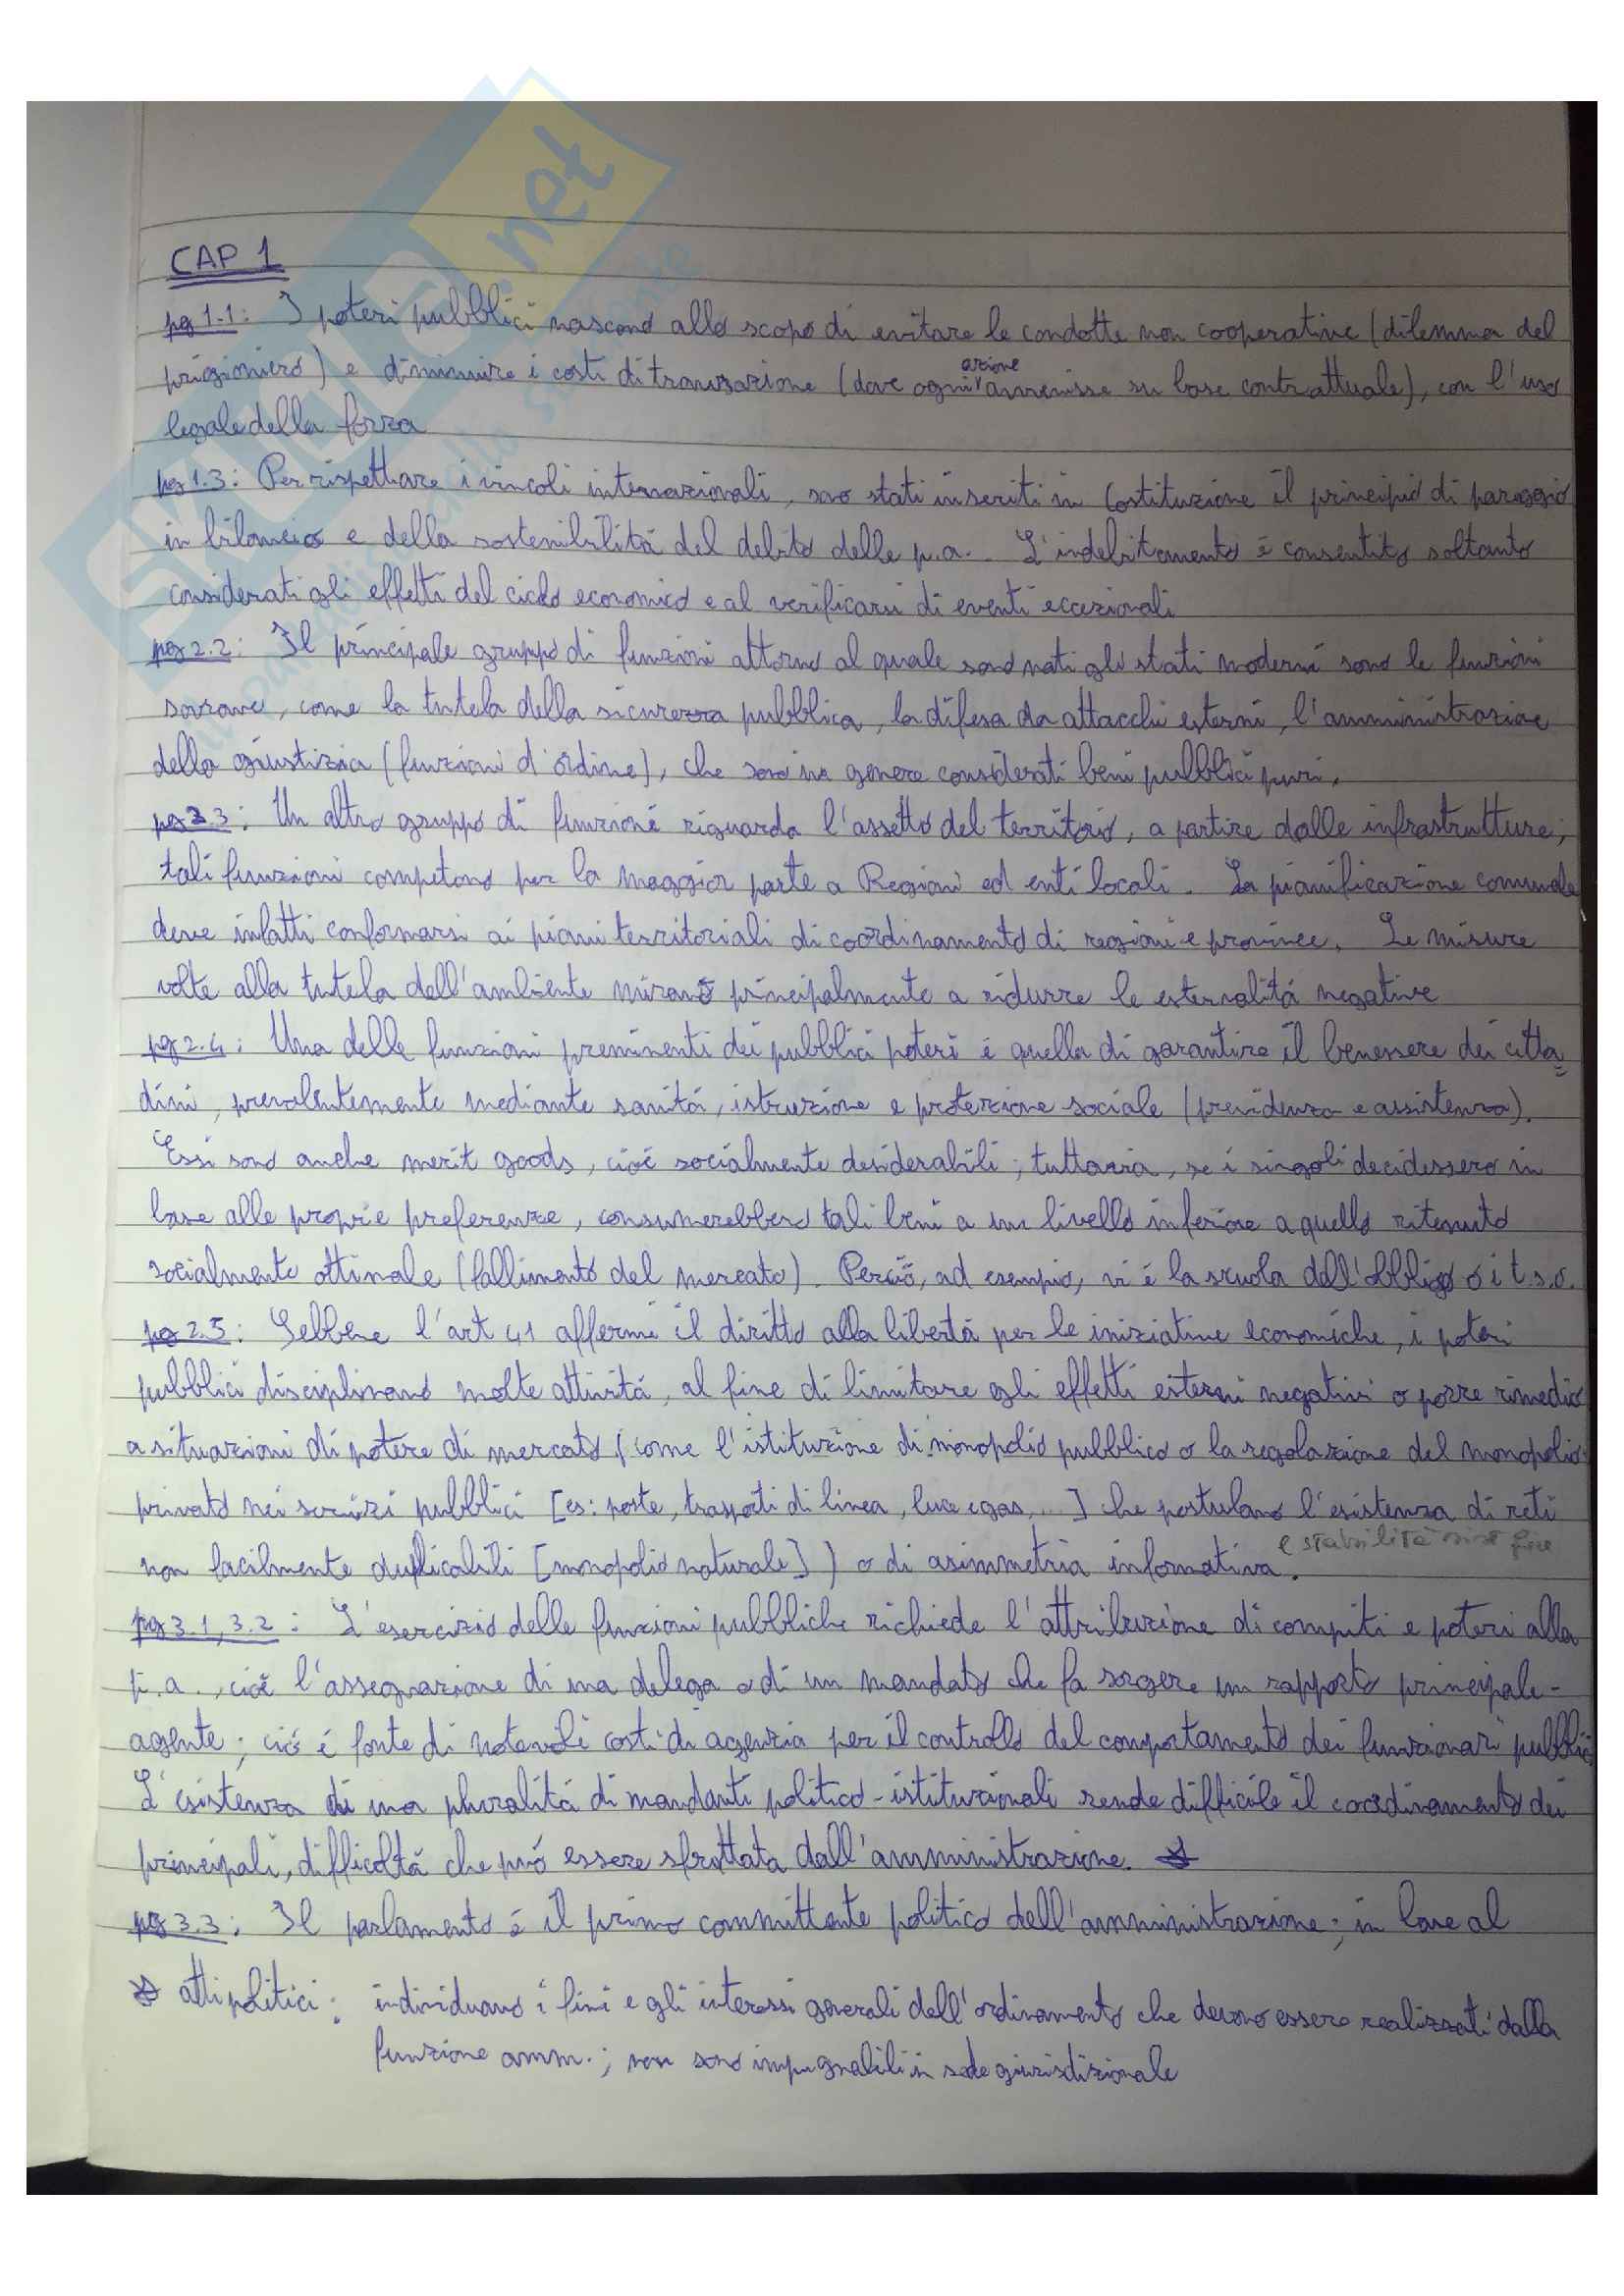 CAP 1
pg 1.1: I poteri pubblici nascono allo scopo di evitare le condotte non cooperative (dilemma del
prigioniero) e diminuire i costi di transazione (dove ogni azione avvenisse su base contrattuale), con l'uso
legale della forza
pg 1.3: Per rispettare i vincoli internazionali, sono stati inseriti in Costituzione il principio di pareggio
in bilancio e della sostenibilità del debito delle p.a.. L'indebitamento è consentito soltanto
considerati gli effetti del ciclo economico e al verificarsi di eventi eccezionali
pg 2.2: Il principale gruppo di funzioni attorno al quale sono nati gli stati moderni sono le funzioni
sovrane, come la tutela della sicurezza pubblica, la difesa da attacchi esterni, l'amministrazione
della giustizia (funzioni d'ordine), che sono in genere considerati beni pubblici puri.
pg 2.3: Un altro gruppo di funzioni riguarda l'assetto del territorio, a partire dalle infrastrutture;
tali funzioni competono per la maggior parte a Regioni ed enti locali. La pianificazione comunale
deve infatti conformarsi ai piani territoriali di coordinamento di regioni e province. Le misure
volte alla tutela dell'ambiente mirano principalmente a ridurre le esternalità negative
pg 2.4: Una delle funzioni preminenti dei pubblici poteri è quella di garantire il benessere dei citta-
dini, prevalentemente mediante sanità, istruzione e protezione sociale (previdenza e assistenza).
Essi sono anche merit goods, cioè socialmente desiderabili; tuttavia, se i singoli decidessero in
base alle proprie preferenze, consumerebbero tali beni a un livello inferiore a quello ritenuto
socialmente ottimale (fallimento del mercato). Perciò, ad esempio, vi è la scuola dell'obbligo o i t.s.o.
pg 2.5: Sebbene l'art 41 affermi il diritto alla libertà per le iniziative economiche, i poteri
pubblici disciplinano molte attività, al fine di limitare gli effetti esterni negativi o porre rimedio
a situazioni di potere di mercato (come l'istituzione di monopolio pubblico o la regolazione del monopolio
privato nei servizi pubblici [es: poste, trasporti di linea, luce e gas, ...] che postulano l'esistenza di reti
non facilmente duplicabili [monopolio naturale]) o di asimmetria informativa. e stabilità
pg 3.1, 3.2: L'esercizio delle funzioni pubbliche richiede l'attribuzione di compiti e poteri alla
p.a., cioè l'assegnazione di una delega o di un mandato che fa sorgere un rapporto principale-
agente; ciò è fonte di notevoli costi di agenzia per il controllo del comportamento dei funzionari pubblici
L'esistenza di una pluralità di mandanti politico-istituzionali rende difficile il coordinamento dei
principali, difficoltà che può essere sfruttata dall'amministrazione. ☆
pg 3.3: Il parlamento è il primo committente politico dell'amministrazione; in base al
☆ atti politici: individuano i fini e gli interessi generali dell'ordinamento che devono essere realizzati dalla
funzione amm.; non sono impugnabili in sede giurisdizionale